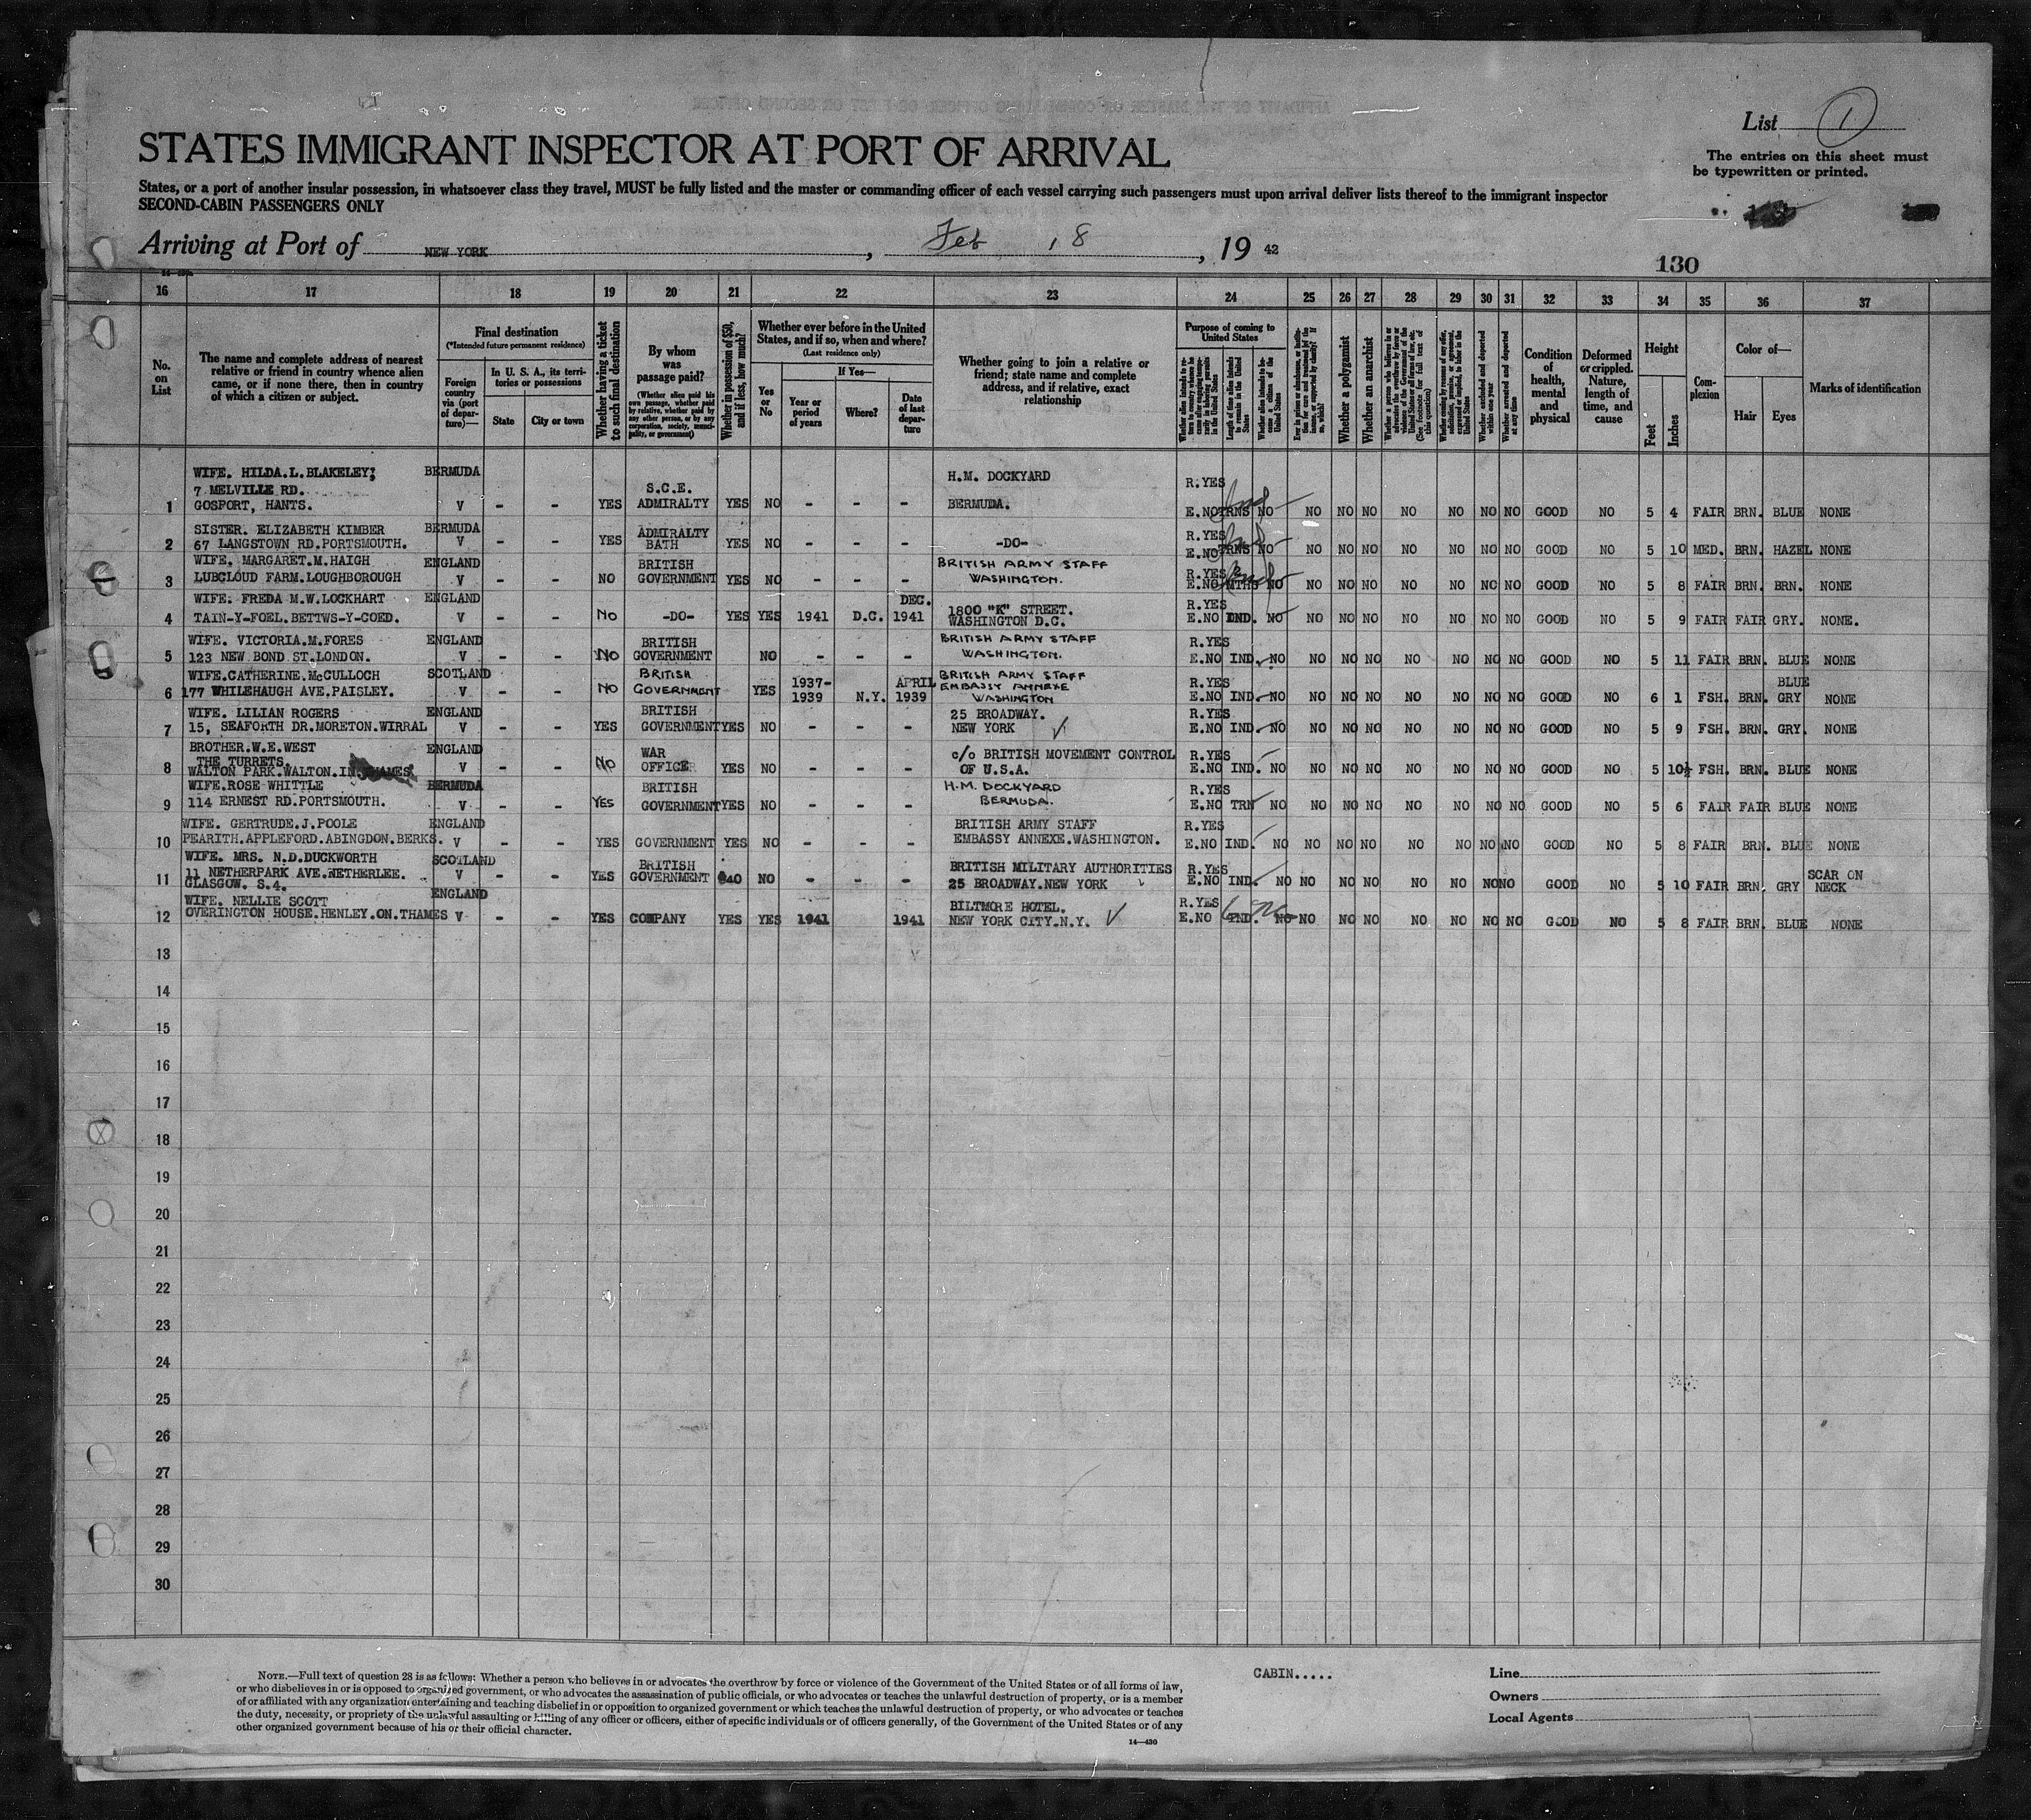 List 1
STATES IMMIGRANT INSPECTOR AT PORT OF ARRIVAL
The entries on this sheet must
be typewritten or printed.
States, or a port of another insular possession, in whatsoever class they travel, MUST be fully listed and the master or commanding officer of each vessel carrying such passengers must upon arrival deliver lists thereof to the immigrant inspector
SECOND-CABIN PASSENGERS ONLY
Arriving at Port of NEW YORK, Feb 18, 19 42
130
16 17 18 19 20 21 22 23 24 25 26 27 28 29 30 31 32 33 34 35 36 37
No. on List
The name and complete address of nearest relative or friend in country whence alien came, or if none there, then in country of which a citizen or subject.
Final destination
(*Intended future permanent residence)
Foreign country via (port of departure)—
In U. S. A., its territories or possessions
State
City or town
Whether having a ticket to such final destination
By whom was passage paid?
(Whether alien paid his own passage, whether paid by relative, whether paid by any other person, or by any corporation, society, municipality, or government)
Whether in possession of $50, and if less, how much?
Whether ever before in the United States, and if so, when and where?
(Last residence only)
Yes or No
If Yes—
Year or period of years
Where?
Date of last departure
Whether going to join a relative or friend; state name and complete address, and if relative, exact relationship
Purpose of coming to United States
Length of time alien intends to remain in the United States
Whether alien intends to become a citizen of the United States
Whether a polygamist
Whether an anarchist
Whether arrested and deported at any time
Condition of health, mental and physical
Deformed or crippled. Nature, length of time, and cause
Height
Feet
Inches
Complexion
Color of—
Hair
Eyes
Marks of identification
WIFE. HILDA.L.BLAKELEY; BERMUDA H.M. DOCKYARD
7 MELVILLE RD. S.C.E. R.YES
1 GOSPORT, HANTS. V - - YES ADMIRALTY YES NO - - - BERMUDA. E.NO TRNS NO NO NO NO NO NO NO NO GOOD NO 5 4 FAIR BRN. BLUE NONE
SISTER. ELIZABETH KIMBER BERMUDA ADMIRALTY R.YES
2 67 LANGSTOWN RD.PORTSMOUTH. V - - YES BATH YES NO - - - -DO- E.NO TRNS NO NO NO NO NO NO NO NO GOOD NO 5 10 MED. BRN. HAZEL NONE
WIFE. MARGARET.M.HAIGH ENGLAND BRITISH BRITISH ARMY STAFF R.YES
3 LUBCLOUD FARM.LOUGHBOROUGH V - - NO GOVERNMENT YES NO - - - WASHINGTON. E.NO MTHS NO NO NO NO NO NO NO NO GOOD NO 5 8 FAIR BRN. BRN. NONE
WIFE. FREDA M.W.LOCKHART ENGLAND DEC. 1800 "K" STREET. R.YES
4 TAIN-Y-FOEL.BETTWS-Y-COED. V - - NO -DO- YES YES 1941 D.C. 1941 WASHINGTON D.C. E.NO IND. NO NO NO NO NO NO NO NO GOOD NO 5 9 FAIR FAIR GRY. NONE.
WIFE. VICTORIA.M.FORES ENGLAND BRITISH BRITISH ARMY STAFF R.YES
5 123 NEW BOND ST.LONDON. V - - NO GOVERNMENT NO - - - WASHINGTON. E.NO IND. NO NO NO NO NO NO NO NO GOOD NO 5 11 FAIR BRN. BLUE NONE
WIFE.CATHERINE.McCULLOCH SCOTLAND BRITISH 1937- APRIL BRITISH ARMY STAFF EMBASSY ANNEXE R.YES BLUE
6 177 WHILEHAUGH AVE.PAISLEY. V - - NO GOVERNMENT YES 1939 N.Y. 1939 WASHINGTON E.NO IND. NO NO NO NO NO NO NO NO GOOD NO 6 1 FSH. BRN. GRY NONE
WIFE. LILIAN ROGERS ENGLAND BRITISH 25 BROADWAY. R.YES
7 15, SEAFORTH DR.MORETON.WIRRAL V - - YES GOVERNMENT YES NO - - - NEW YORK E.NO IND. NO NO NO NO NO NO NO NO GOOD NO 5 9 FSH. BRN. GRY. NONE
BROTHER.W.E.WEST ENGLAND
THE TURRETS. WAR c/o BRITISH MOVEMENT CONTROL R.YES
8 WALTON PARK.WALTON.IN.THAMES V - - NO OFFICE YES NO - - - OF U.S.A. E.NO IND. NO NO NO NO NO NO NO NO GOOD NO 5 10½ FSH. BRN. BLUE NONE
WIFE.ROSE WHITTLE BERMUDA BRITISH H.M. DOCKYARD R.YES
9 114 ERNEST RD.PORTSMOUTH. V - - YES GOVERNMENT YES NO - - - BERMUDA. E.NO TRN NO NO NO NO NO NO NO NO GOOD NO 5 6 FAIR FAIR BLUE NONE
WIFE. GERTRUDE.J.POOLE ENGLAND BRITISH ARMY STAFF R.YES
10 PEARITH.APPLEFORD.ABINGDON.BERKS. V - - YES GOVERNMENT YES NO - - - EMBASSY ANNEXE.WASHINGTON. E.NO IND. NO NO NO NO NO NO NO NO GOOD NO 5 8 FAIR BRN. BLUE NONE
WIFE. MRS. N.D.DUCKWORTH SCOTLAND BRITISH BRITISH MILITARY AUTHORITIES R.YES SCAR ON
11 11 NETHERPARK AVE.NETHERLEE. V - - YES GOVERNMENT $40 NO - - - 25 BROADWAY.NEW YORK E.NO IND. NO NO NO NO NO NO NO NO GOOD NO 5 10 FAIR BRN. GRY NECK
GLASGOW. S.4.
WIFE. NELLIE SCOTT ENGLAND BILTMORE HOTEL. R.YES
12 OVERINGTON HOUSE.HENLEY.ON.THAMES V - - YES COMPANY YES YES 1941 1941 NEW YORK CITY.N.Y. E.NO IND. NO NO NO NO NO NO NO NO GOOD NO 5 8 FAIR BRN. BLUE NONE
13
14
15
16
17
18
19
20
21
22
23
24
25
26
27
28
29
30
NOTE.—Full text of question 28 is as follows: Whether a person who believes in or advocates the overthrow by force or violence of the Government of the United States or of all forms of law,
or who disbelieves in or is opposed to organized government, or who advocates the assassination of public officials, or who advocates or teaches the unlawful destruction of property, or is a member
of or affiliated with any organization entertaining and teaching disbelief in or opposition to organized government or which teaches the unlawful destruction of property, or who advocates or teaches
the duty, necessity, or propriety of the unlawful assaulting or killing of any officer or officers, either of specific individuals or of officers generally, of the Government of the United States or of any
other organized government because of his or their official character.
14—430
CABIN.....
Line
Owners
Local Agents